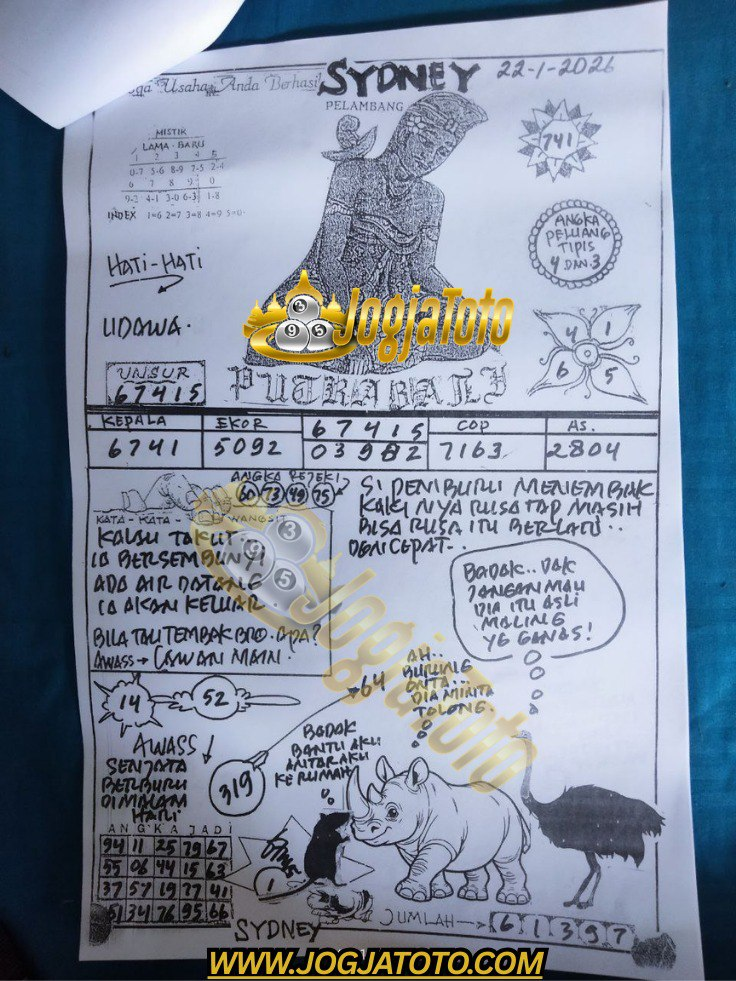 Usaha Anda Berhasil
SYDNEY
22-1-2026
PELAMBANG
MISTIK
LAMA - BARU
1 2 3 4 5
0-7 5-6 8-9 7-5 2-4
6 7 8 9 0
9-3 4-1 3-0 6-3 1-8
INDEX 1=6 2=7 3=8 4=9 5=0
741
ANGKA
PELUANG
TIPIS
4 DAN 3
HATI-HATI
UDAWA.
JogjaToto
3
9 5
4 1
6 5
UNSUR
67415
PUTRA BALI
KEPALA
6741
EKOR
5092
67415
03982
COP
7163
AS.
2804
ANGKA REJEKI?
60 73 49 75
KATA - KATA - WANGSIT
KALAU TAKUT
IA BERSEMBUNYI
ADA AIR DATANG
IA AKAN KELUAR.
BILA TAU TEMBAK BRO. APA?
AWASS → LAWAN MAIN.
SI PEMBURU MENEMBAK
KAKI NYA RUSA TAP MASIH
BISA RUSA ITU BERLARI..
DGN CEPAT-.
BADAK.. DAK
JANGAN MAU
DIA ITU ASLI
MALING
YG GANAS!
JogjaToto
3
9 5
14
52
64
AH..
BURUNG
ONTA...
DIA MINTA
TOLONG.
AWASS
SENJATA
BERBURU
DIMALAM
HARI
319
BADAK
BANTU AKU
ANTAR AKU
KE RUMAH
ANGKA JADI
94 11 25 79 67
55 06 44 15 63
37 57 19 27 41
51 34 76 95 66
1
SYDNEY
JUMLAH → 6 1 3 9 7
WWW.JOGJATOTO.COM